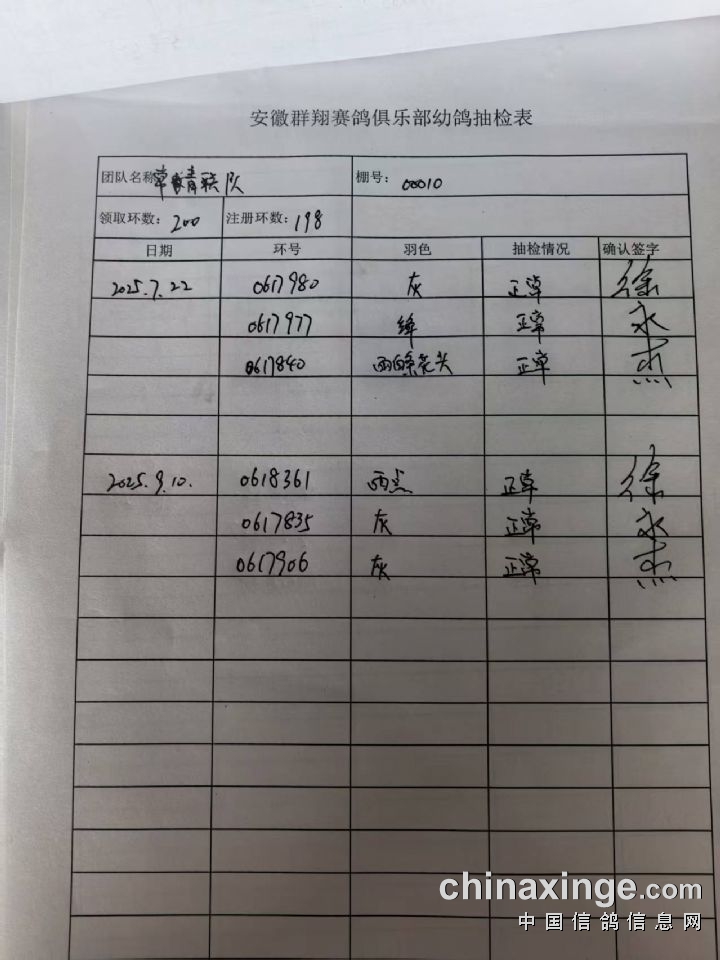 安徽群翔赛鸽俱乐部幼鸽抽检表
团队名称 青联队 棚号: 00010
领取环数: 200 注册环数: 198
日期 环号 羽色 抽检情况 确认签字
2025.7.22 0617980 灰 正常 徐
0617977 绛 正常 永
0617840 雨白条花头 正常 杰
2025.9.10. 0618361 雨点 正常 徐
0617835 灰 正常 永
0617906 灰 正常 杰
chinaxinge.com
中国信鸽信息网